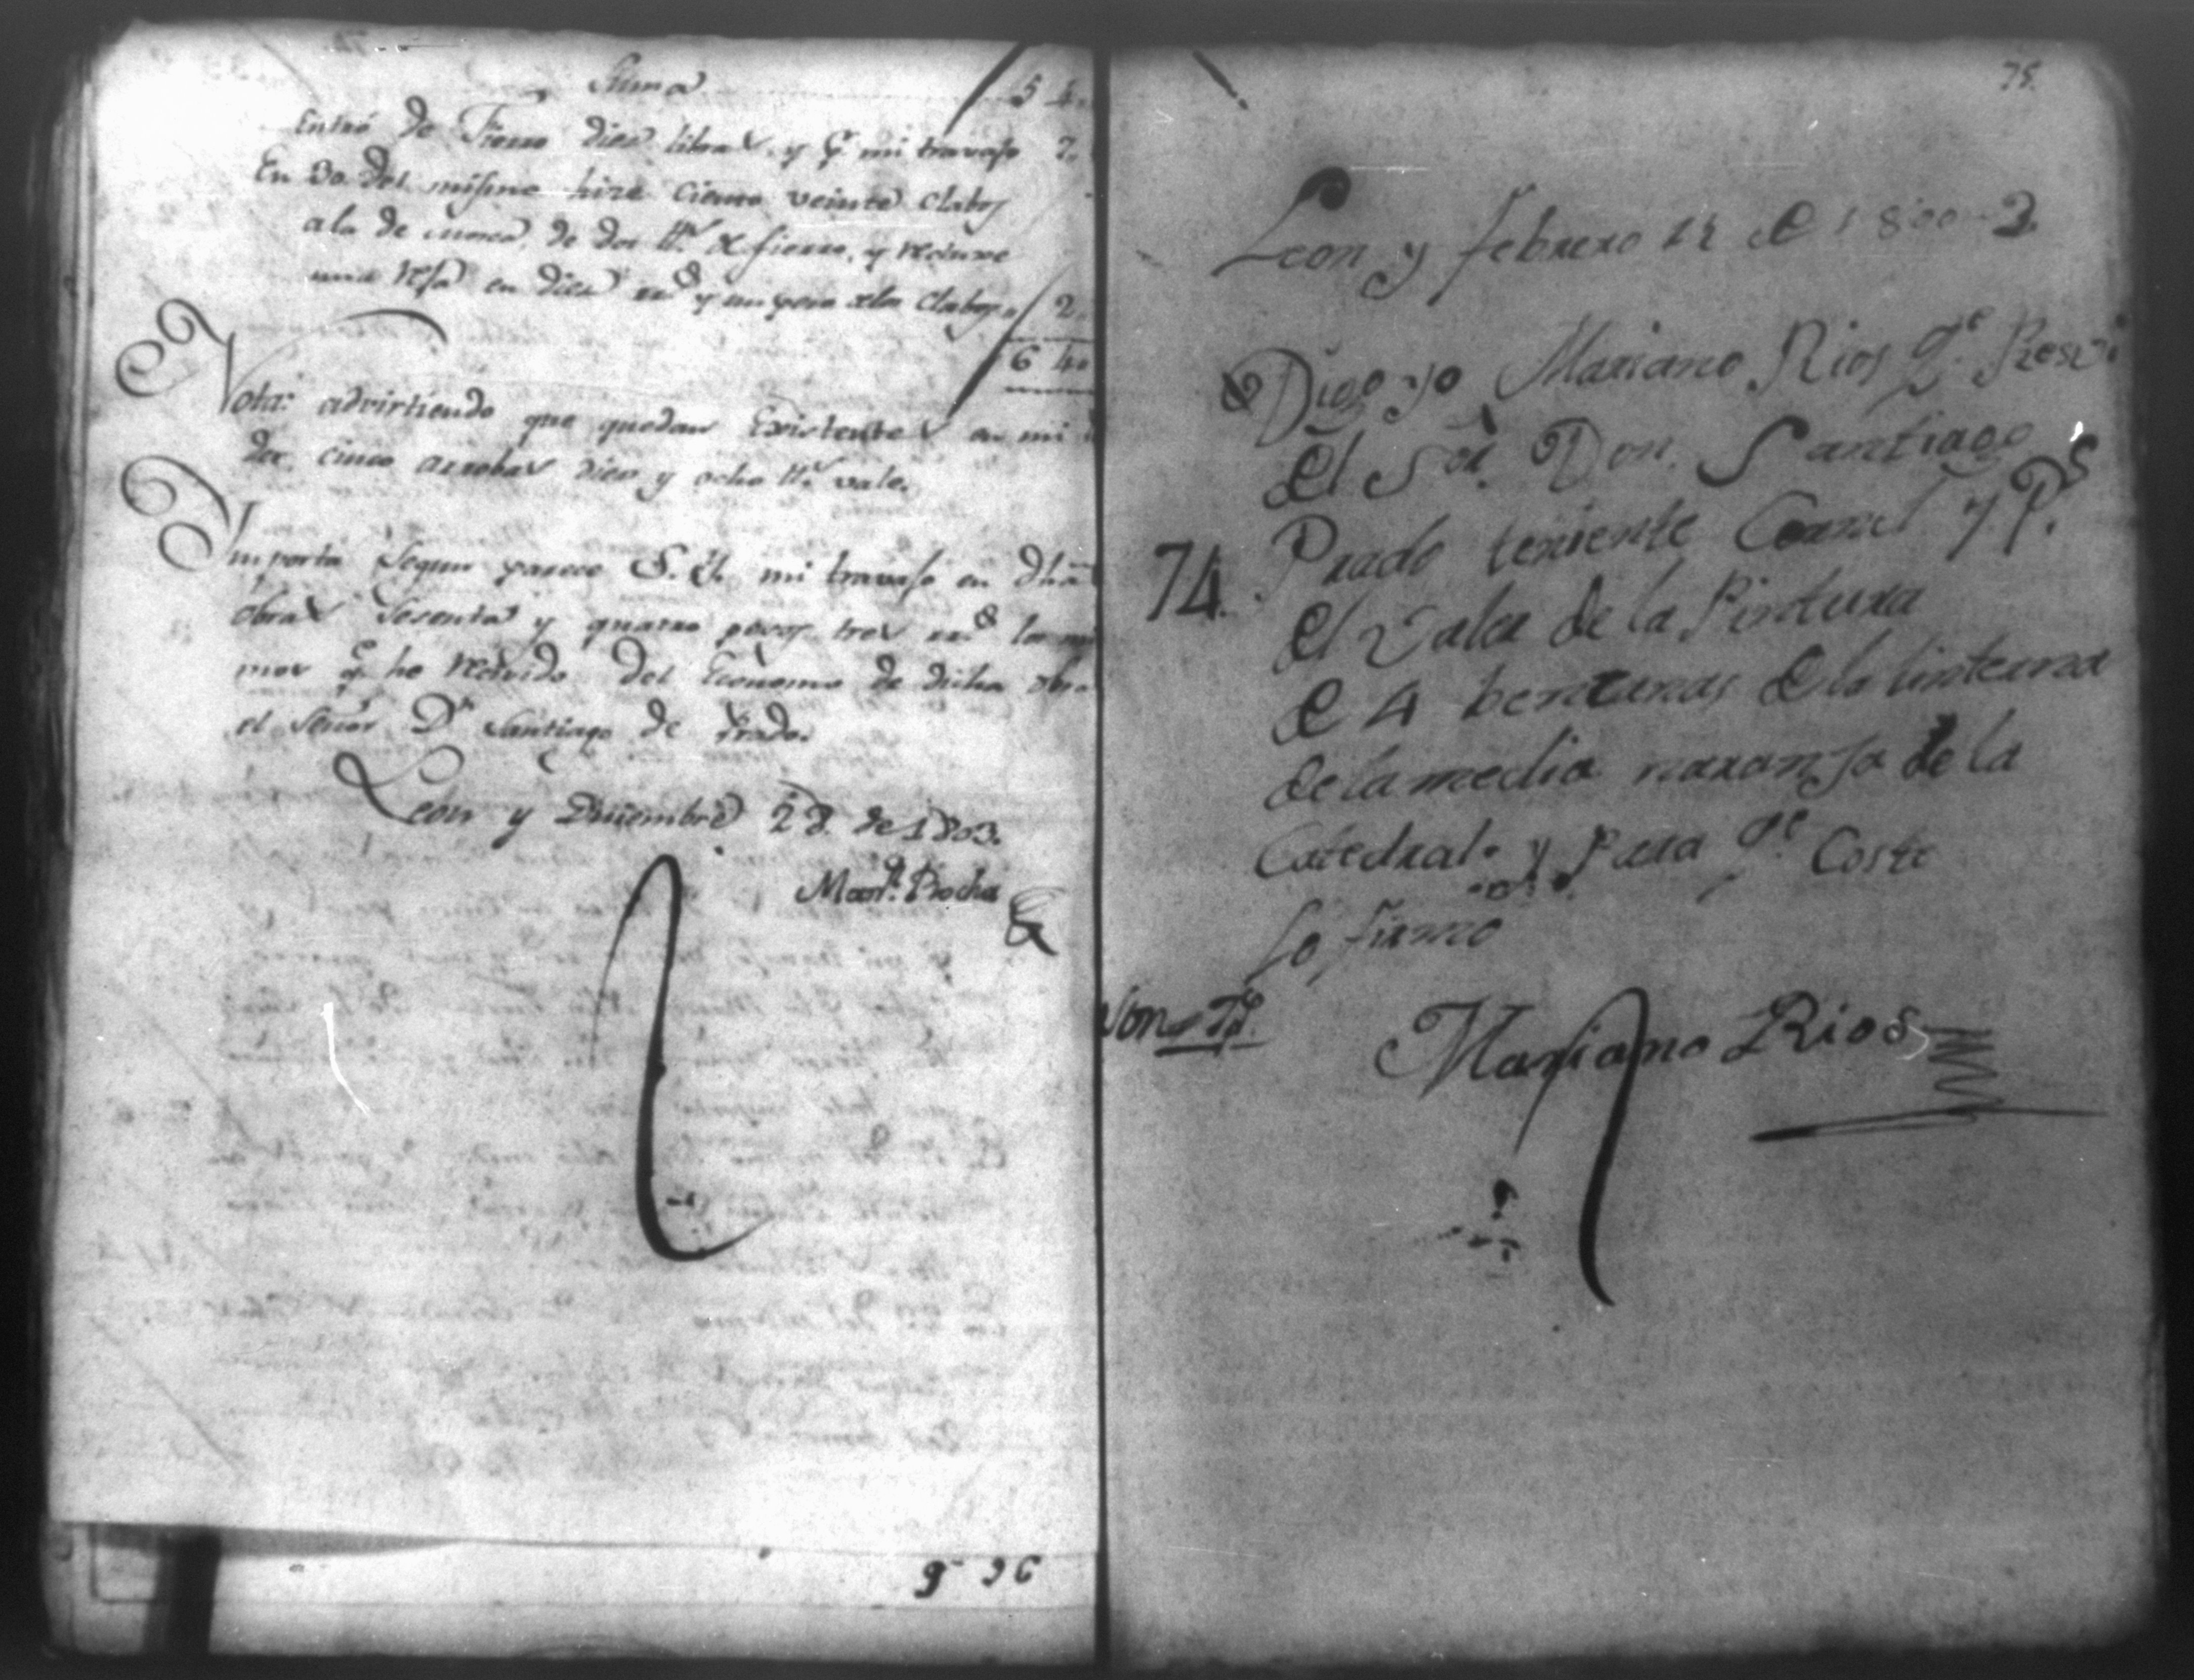 Suma
5 4.
Entró de Fierro dies libras, y pr. mi travajo 7.
En 30 del mismo hize ciento veinte clabos
ala de de dos lls. fierro, y
una en dies rrs. y mi pera clabos. 2.
6 4.
Nota: advirtiendo que quedan Existentes en mi
der cinco arrobas dies y ocho lls. vale.
Importa segun parece S. Y. mi travajo en dha
obra sesenta y quatro pesos tres rrs. los
mos q. he recivido del Economo de dicha obra
el señor Dn. Santiago de Prado.
Leon y Diciembre 28. de 1803.
Manl. Rocha
9 96
75.
Leon y febrero 12 de 1800 3.
Digo yo Mariano Rios qe. Resevi
del Sor. Don. Santiago
74. Prado teniente Coronel 7 Ps.
el Valor de la Pintura
de 4 bentanas de la linterna
de la media naranja de la
Catedral. y Para qe. Coste
lo firmo
Son 7 ps.
Mariano Rios